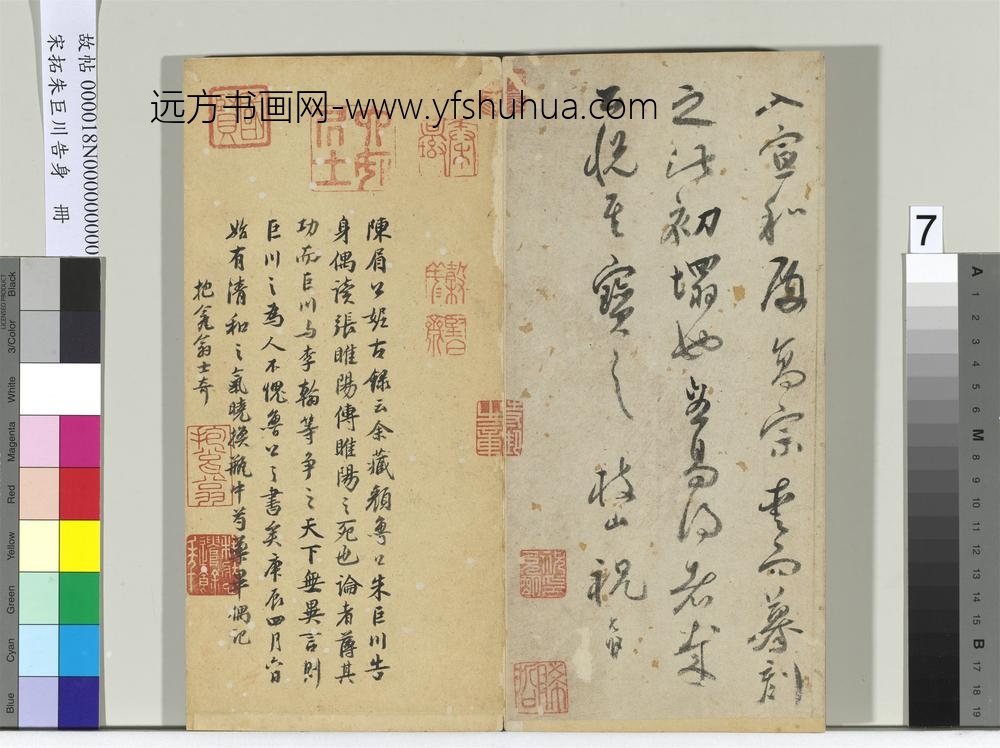 远方书画网-www.yfshuhua.com
故帖 000018N000000000
宋拓朱巨川告身 冊
7
入宣和殿高宗 而摹刻
之此初塌也岂易得者哉
悦其寶之 枝山祝允明
陳眉公妮古錄云余藏顏魯公朱巨川告
身偶讀張睢陽傳睢陽之死也論者薄其
功而巨川与李翰等争之天下無異言則
巨川之為人不愧魯公之書矣庚辰四月六日
始有清和之氣曉換瓶中芍藥畢偶記
抱瓮翁士奇
抱瓮翁
LICENSED PRODUCT
Black
3/Color
White
Magenta
Red
Yellow
Green
Cyan
Blue
A 1 2 3 4 5 6 M 8 9 10 11 12 13 14 15 B 17 18 19